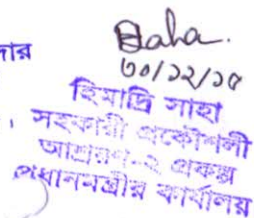 দার
Saha.
৩০/১২/১৫
হিমাদ্রি সাহা
সহকারী প্রকৌশলী
আশ্রয়ণ-২ প্রকল্প
প্রধানমন্ত্রীর কার্যালয়